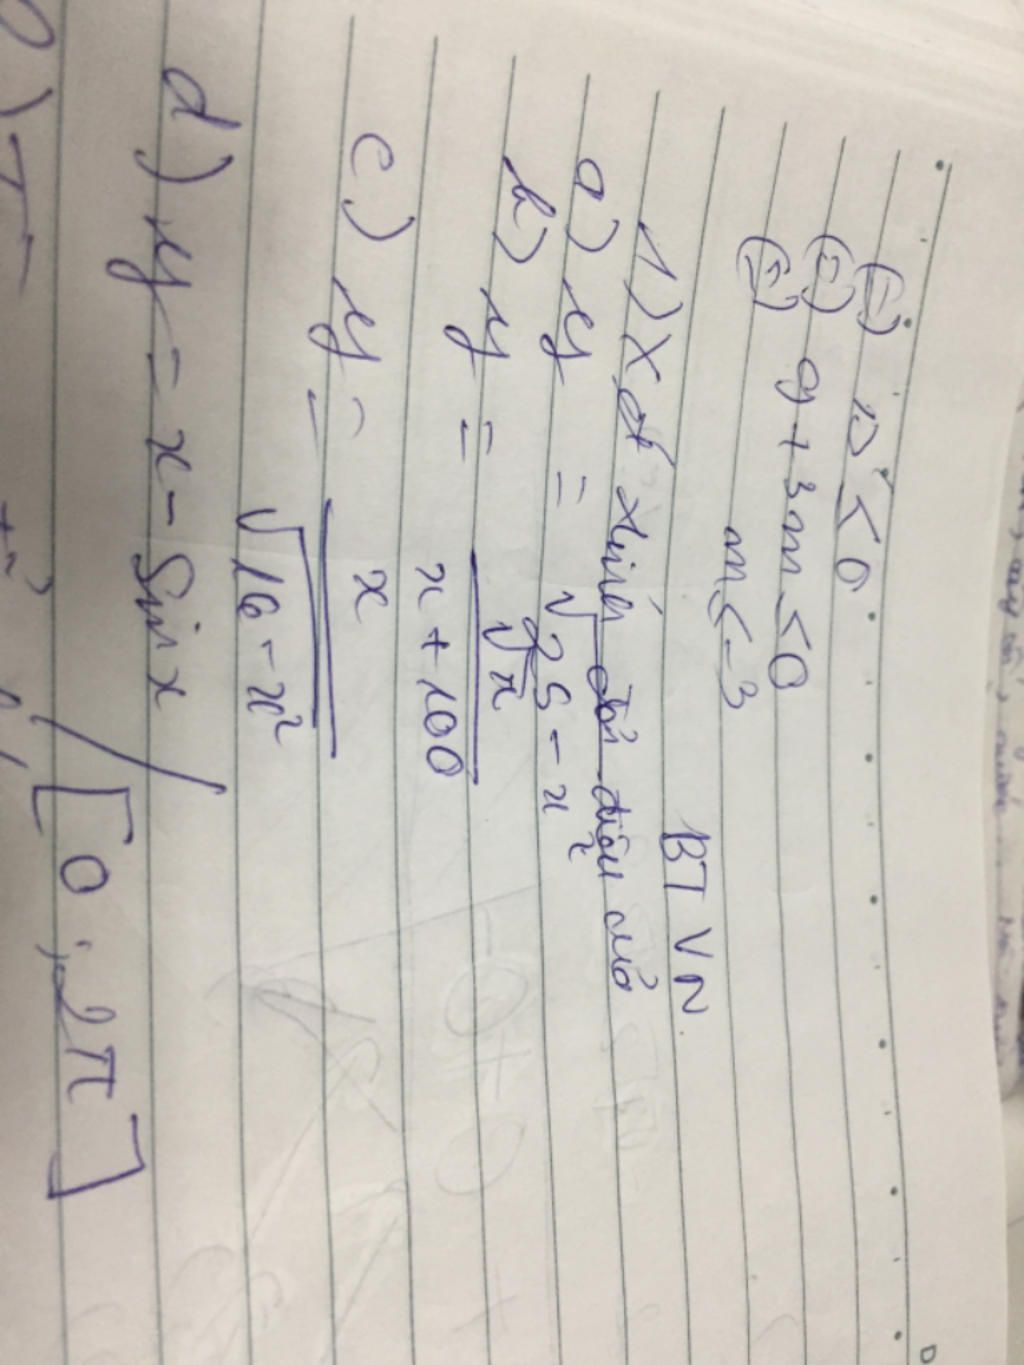 (=) Δ' ≤ 0
(=) 9 + 3m ≤ 0
(=) m ≤ -3
BTVN
1) Xét chiều đơn điệu của
a) y = √25 - x²
b) y = √x / x + 100
c) y = x / √16 - x²
d) y = x - Sin x / [0 ; 2π]